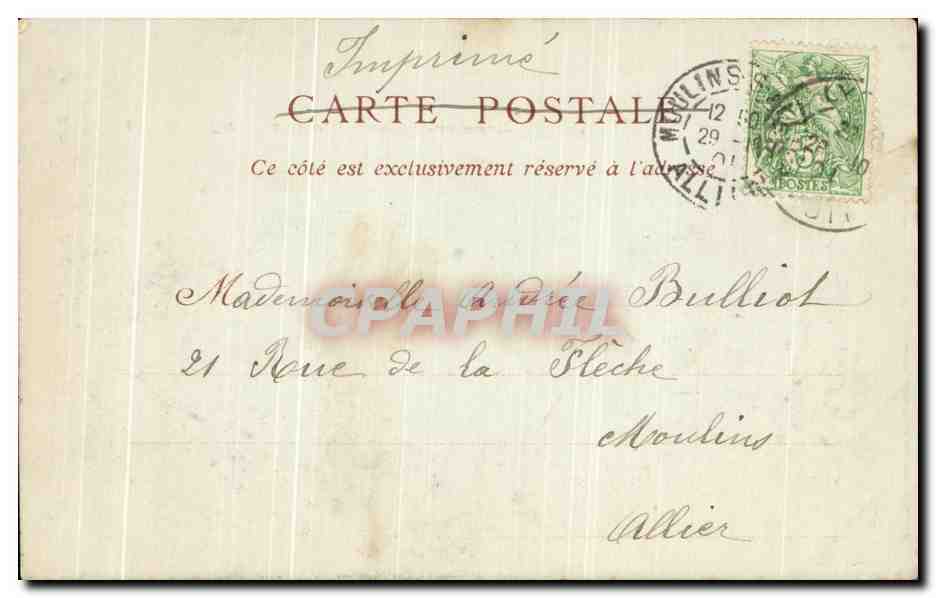 Imprimé
CARTE POSTALE
Ce côté est exclusivement réservé à l'adresse
MOULINS
12
29
ALLIER
5
POSTES
Mademoiselle Andrée Bulliot
CPAPHIL
21 Rue de la Flèche
Moulins
Allier